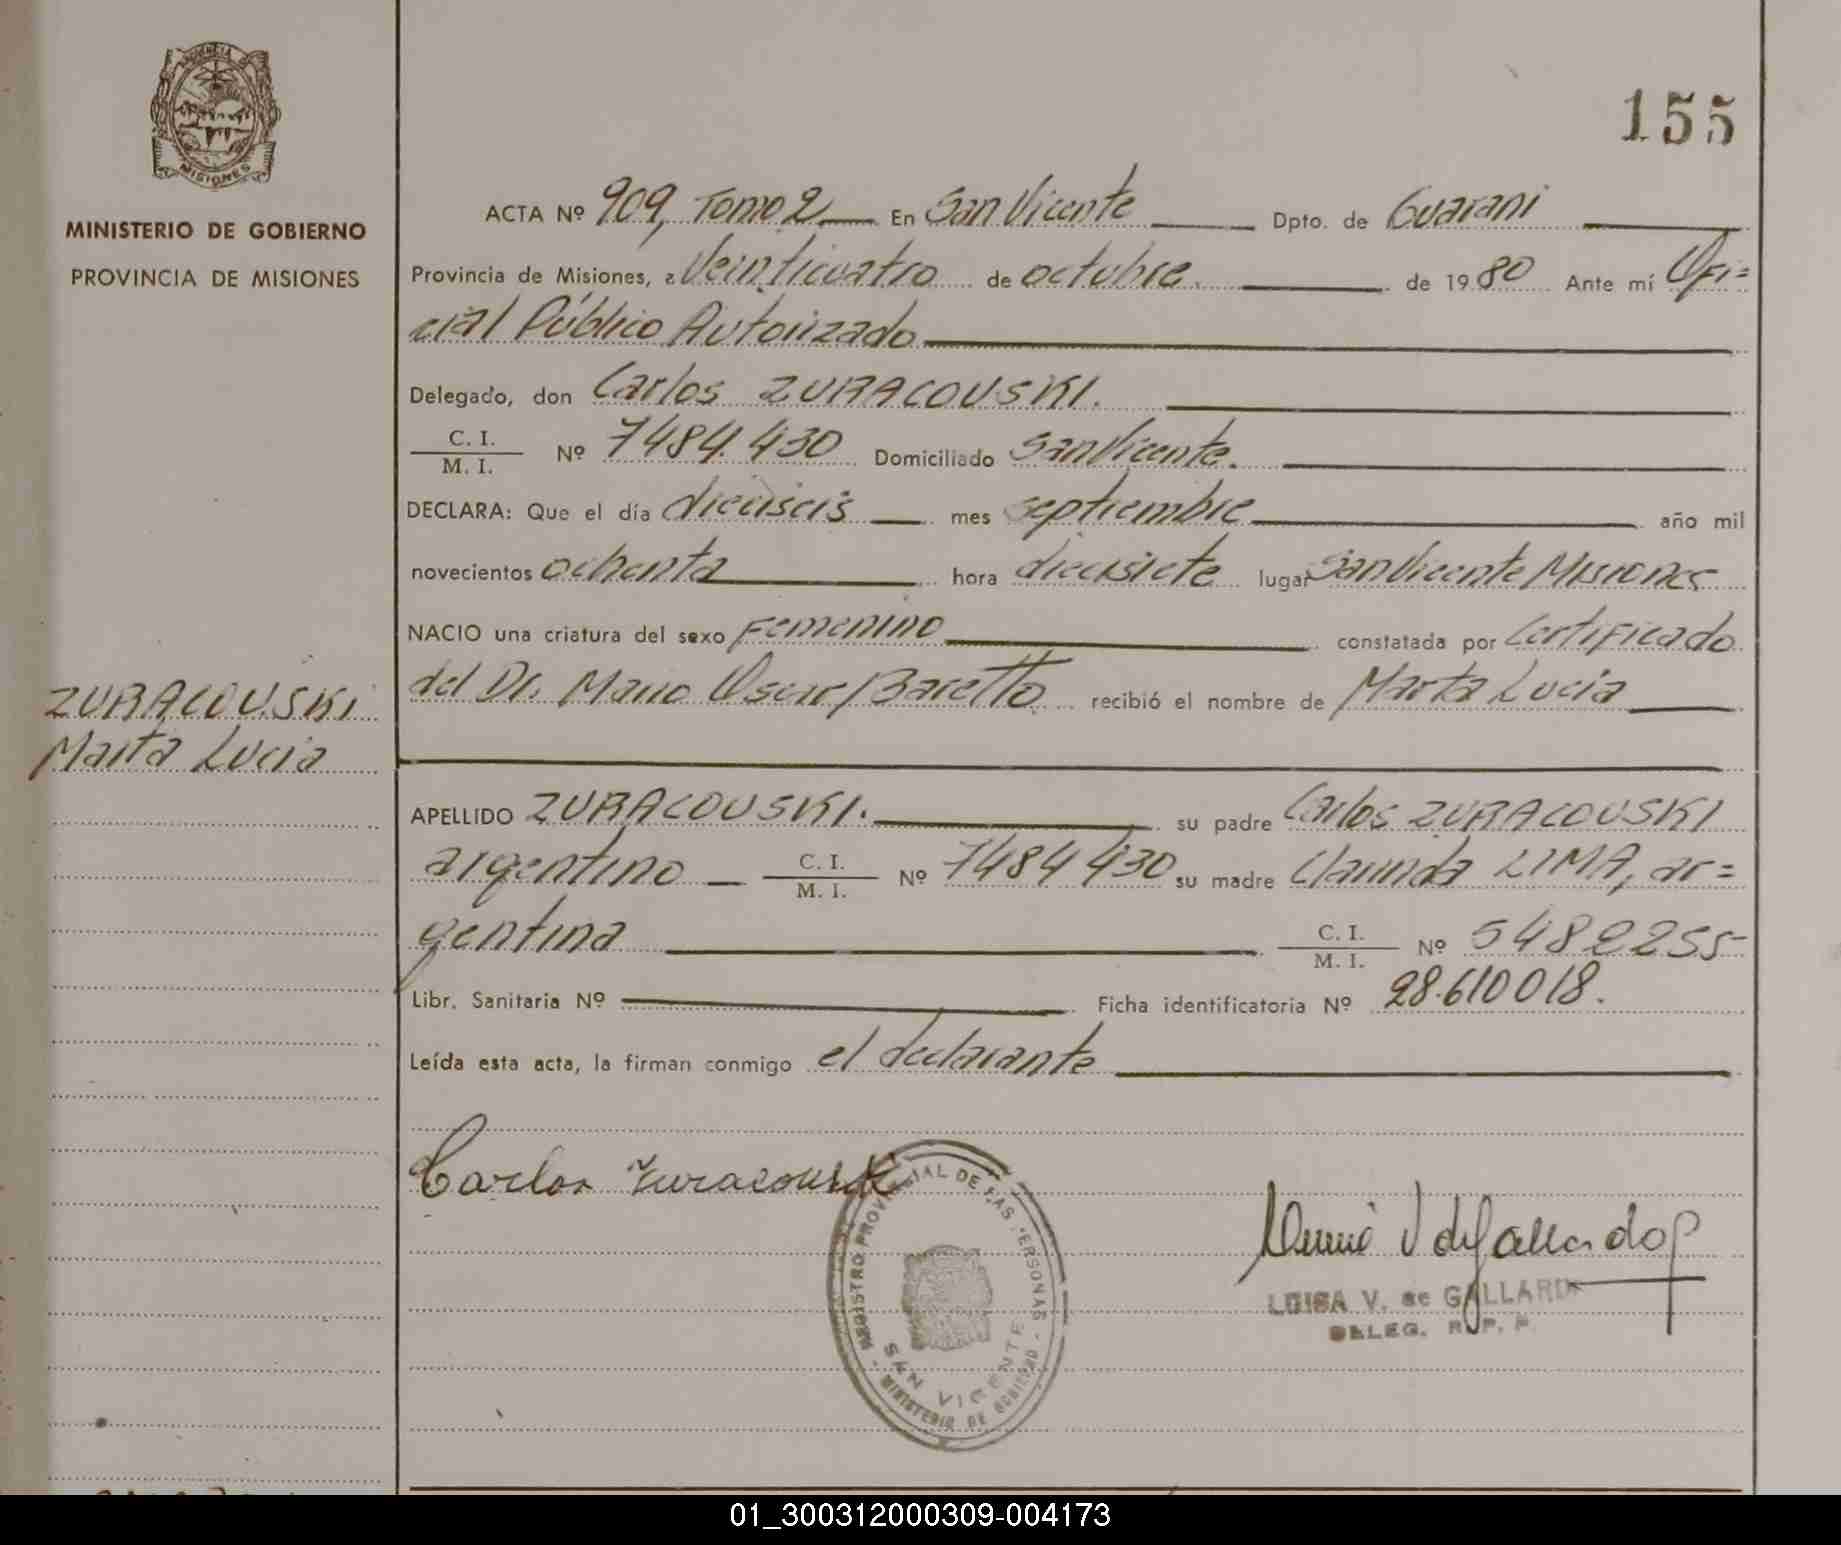 PROVINCIA DE
MISIONES
MINISTERIO DE GOBIERNO
PROVINCIA DE MISIONES
155
ACTA Nº 909, Tomo 2 En San Vicente Dpto. de Guarani
Provincia de Misiones, a Veinticuatro de octubre. de 1980 Ante mí Ofi=
cial Público Autorizado
Delegado, don Carlos ZURACOUSKI.
C. I.
M. I. Nº 7484.430 Domiciliado San Vicente.
DECLARA: Que el día dieciseis mes septiembre año mil
novecientos ochenta hora diecisiete lugar San Vicente Misiones
NACIO una criatura del sexo Femenino constatada por Certificado
del Dr. Mario Oscar Baretto recibió el nombre de Marta Lucia
ZURACOUSKI
Marta Lucia
APELLIDO ZURACOUSKI. su padre Carlos ZURACOUSKI
argentino C. I.
M. I. Nº 7484430 su madre Clarinda LIMA, ar=
gentina C. I.
M. I. Nº 5482255
Libr. Sanitaria Nº Ficha identificatoria Nº 28.610018.
Leída esta acta, la firman conmigo el declarante
Carlos Zuracouski
REGISTRO PROVINCIAL DE LAS PERSONAS
SAN VICENTE
MINISTERIO DE GOBIERNO
V de Gallardo
LUISA V. de GALLARDO
DELEG. R. P. P.
01_300312000309-004173